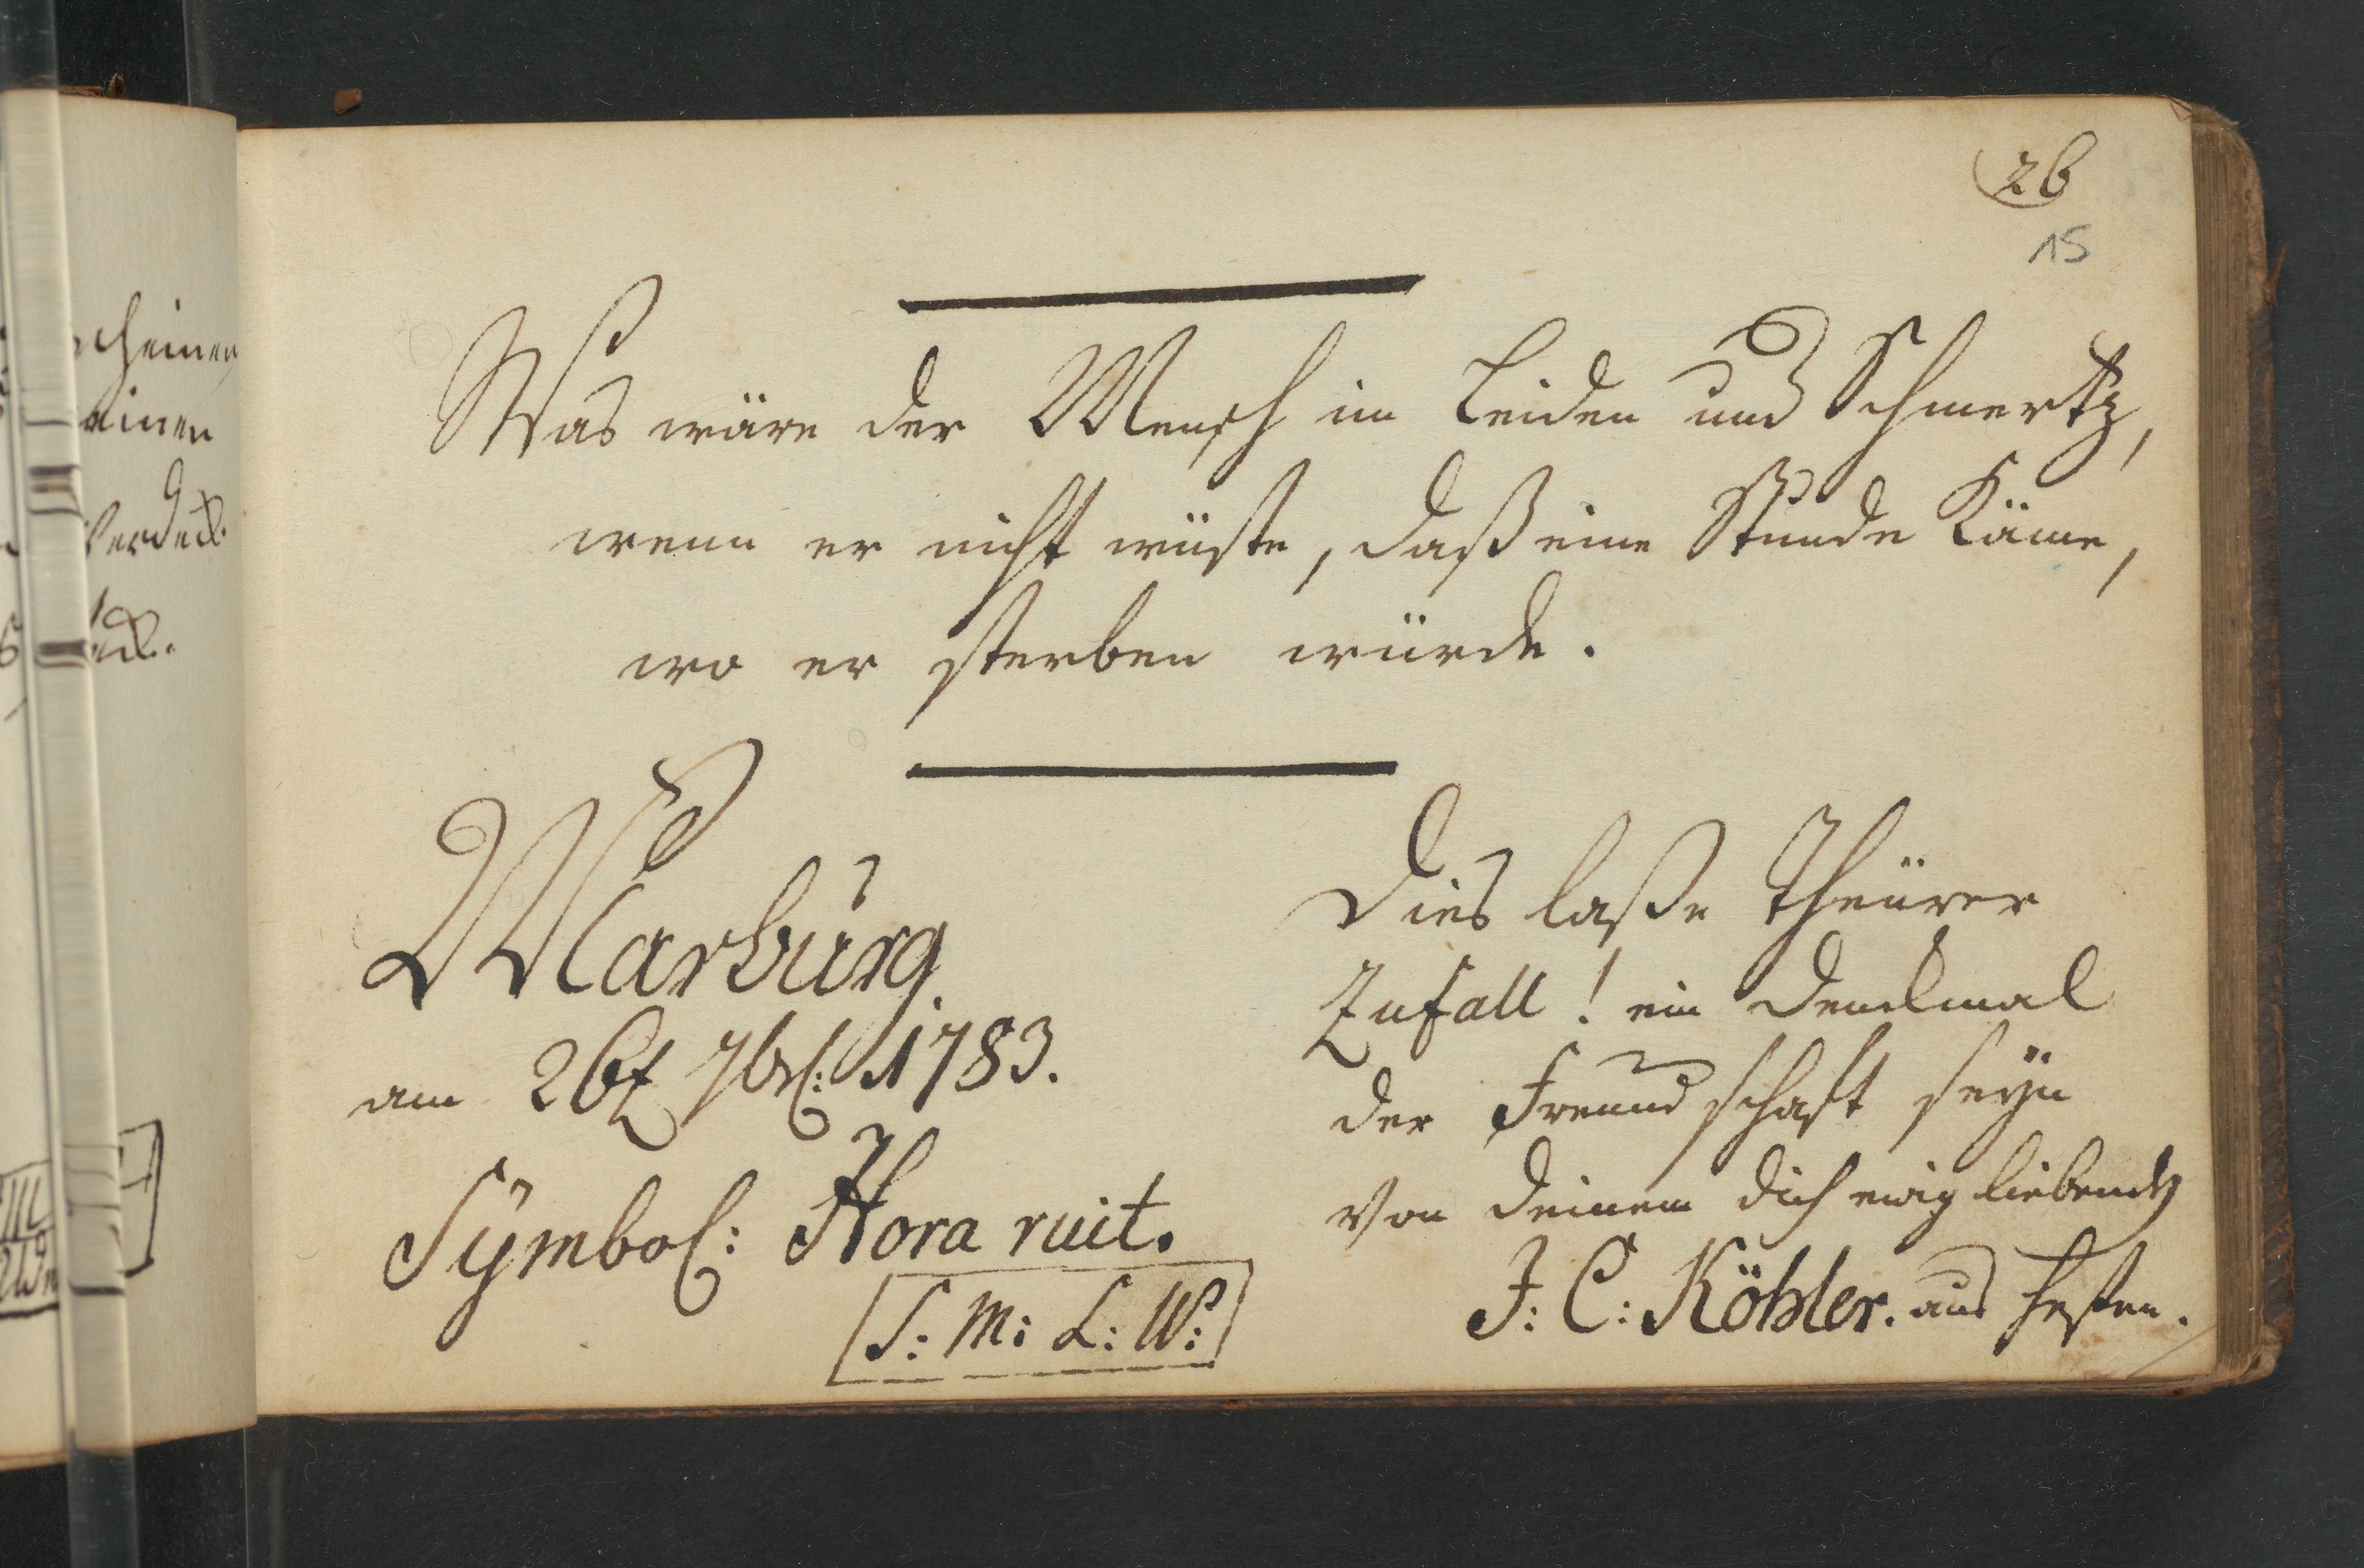 26
15
Was wäre der Mensch im Leiden und Schmertz,
wenn er nicht wüste, daß eine Stunde käme,
wo er sterben würde.
Marburg.
am 26t 7br: 1783.
Symbol: Hora ruit.
S: M: L: W:
Dies laße Theürer
Zufall! ein Denckmal
der Freundschafft seyn
von Deinem dich ewig liebenden
J: C: Köhler. aus Heßen.